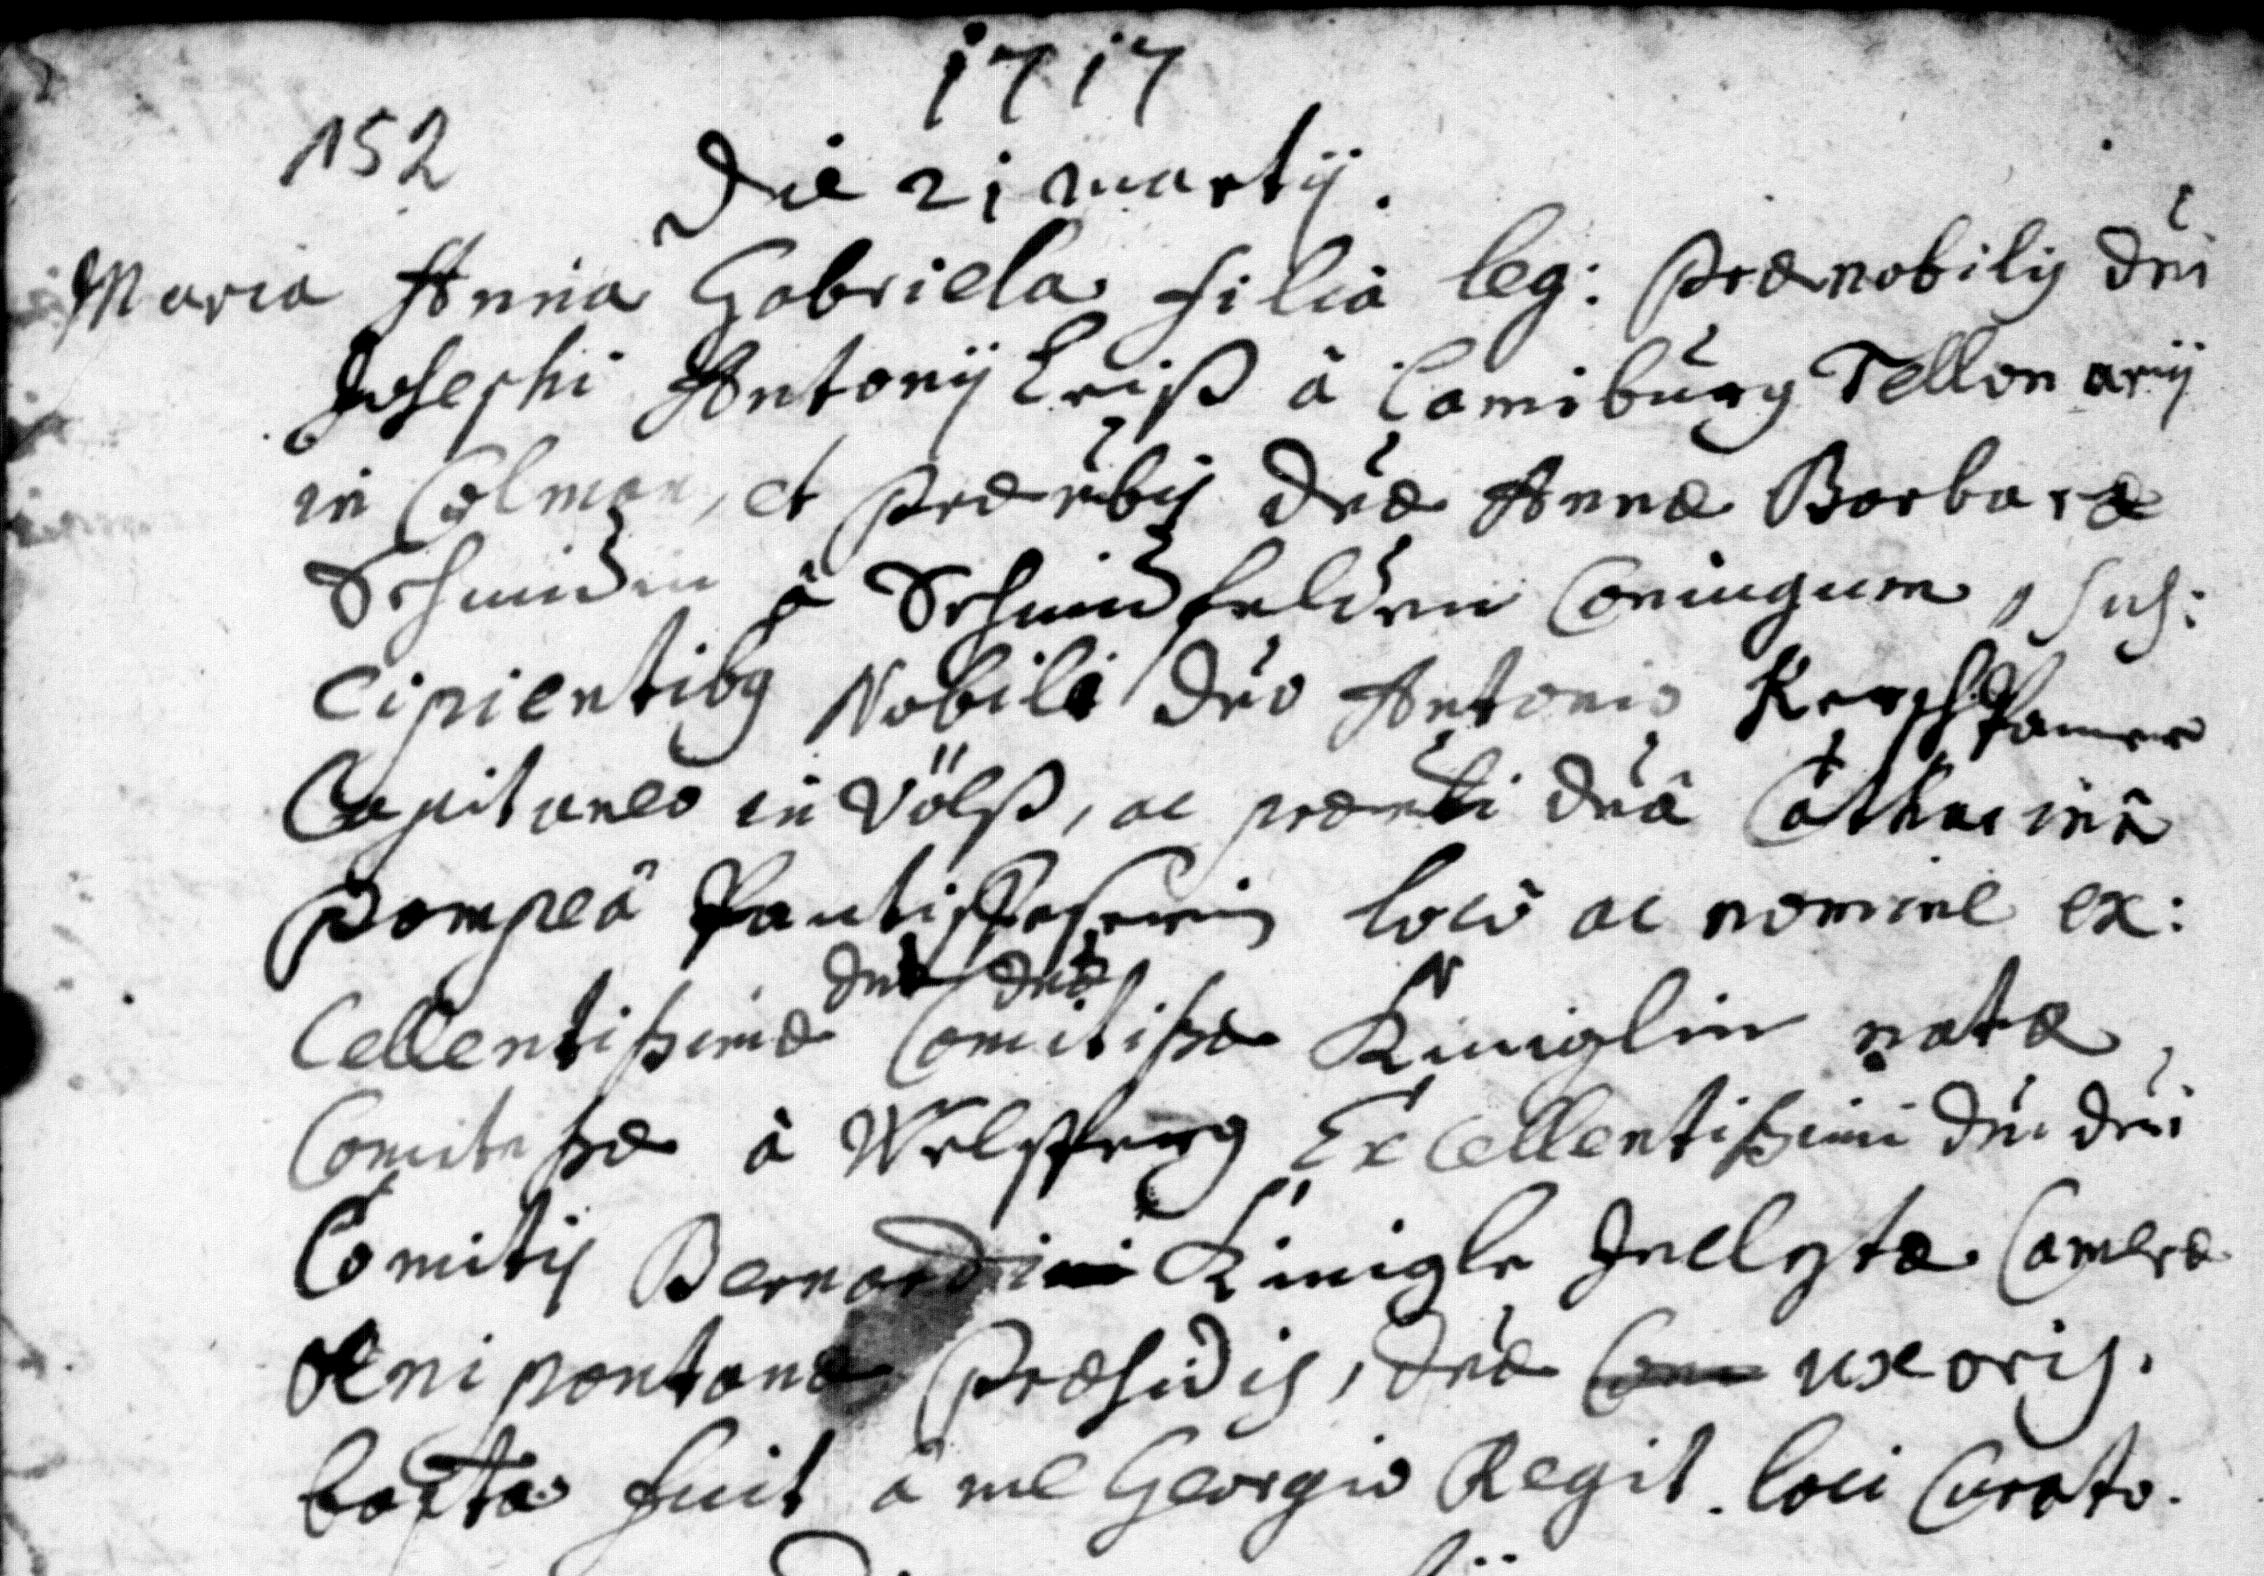 1717
152
Die 21 martij.
Maria Anna Gabriela filia leg: Prænobilis dni
Josephi Antonij Criß à Camiburg Tellonarij
in Colman, et Prænbis dnæ Annæ Barbaræ
Schmidin à Schmidfelden Coniugum, sus:
cipientibus Nobili dno Antonio Kerschpamer
Capitaneo in Völß, ac prænbi dnâ Catharinâ
Pompeâ loco ac nomine ex:
cellentißimæ dnæ dnæ Comitißæ Kiniglin natæ
Comitißæ à Welsperg Excellentißimi dni dni
Comitis Bernardini Kinigle Inclytæ Cameræ
Oenipontanæ Præsidis, dnæ uxoris.
bapta fuit à me Georgio Regit. loci Curato.